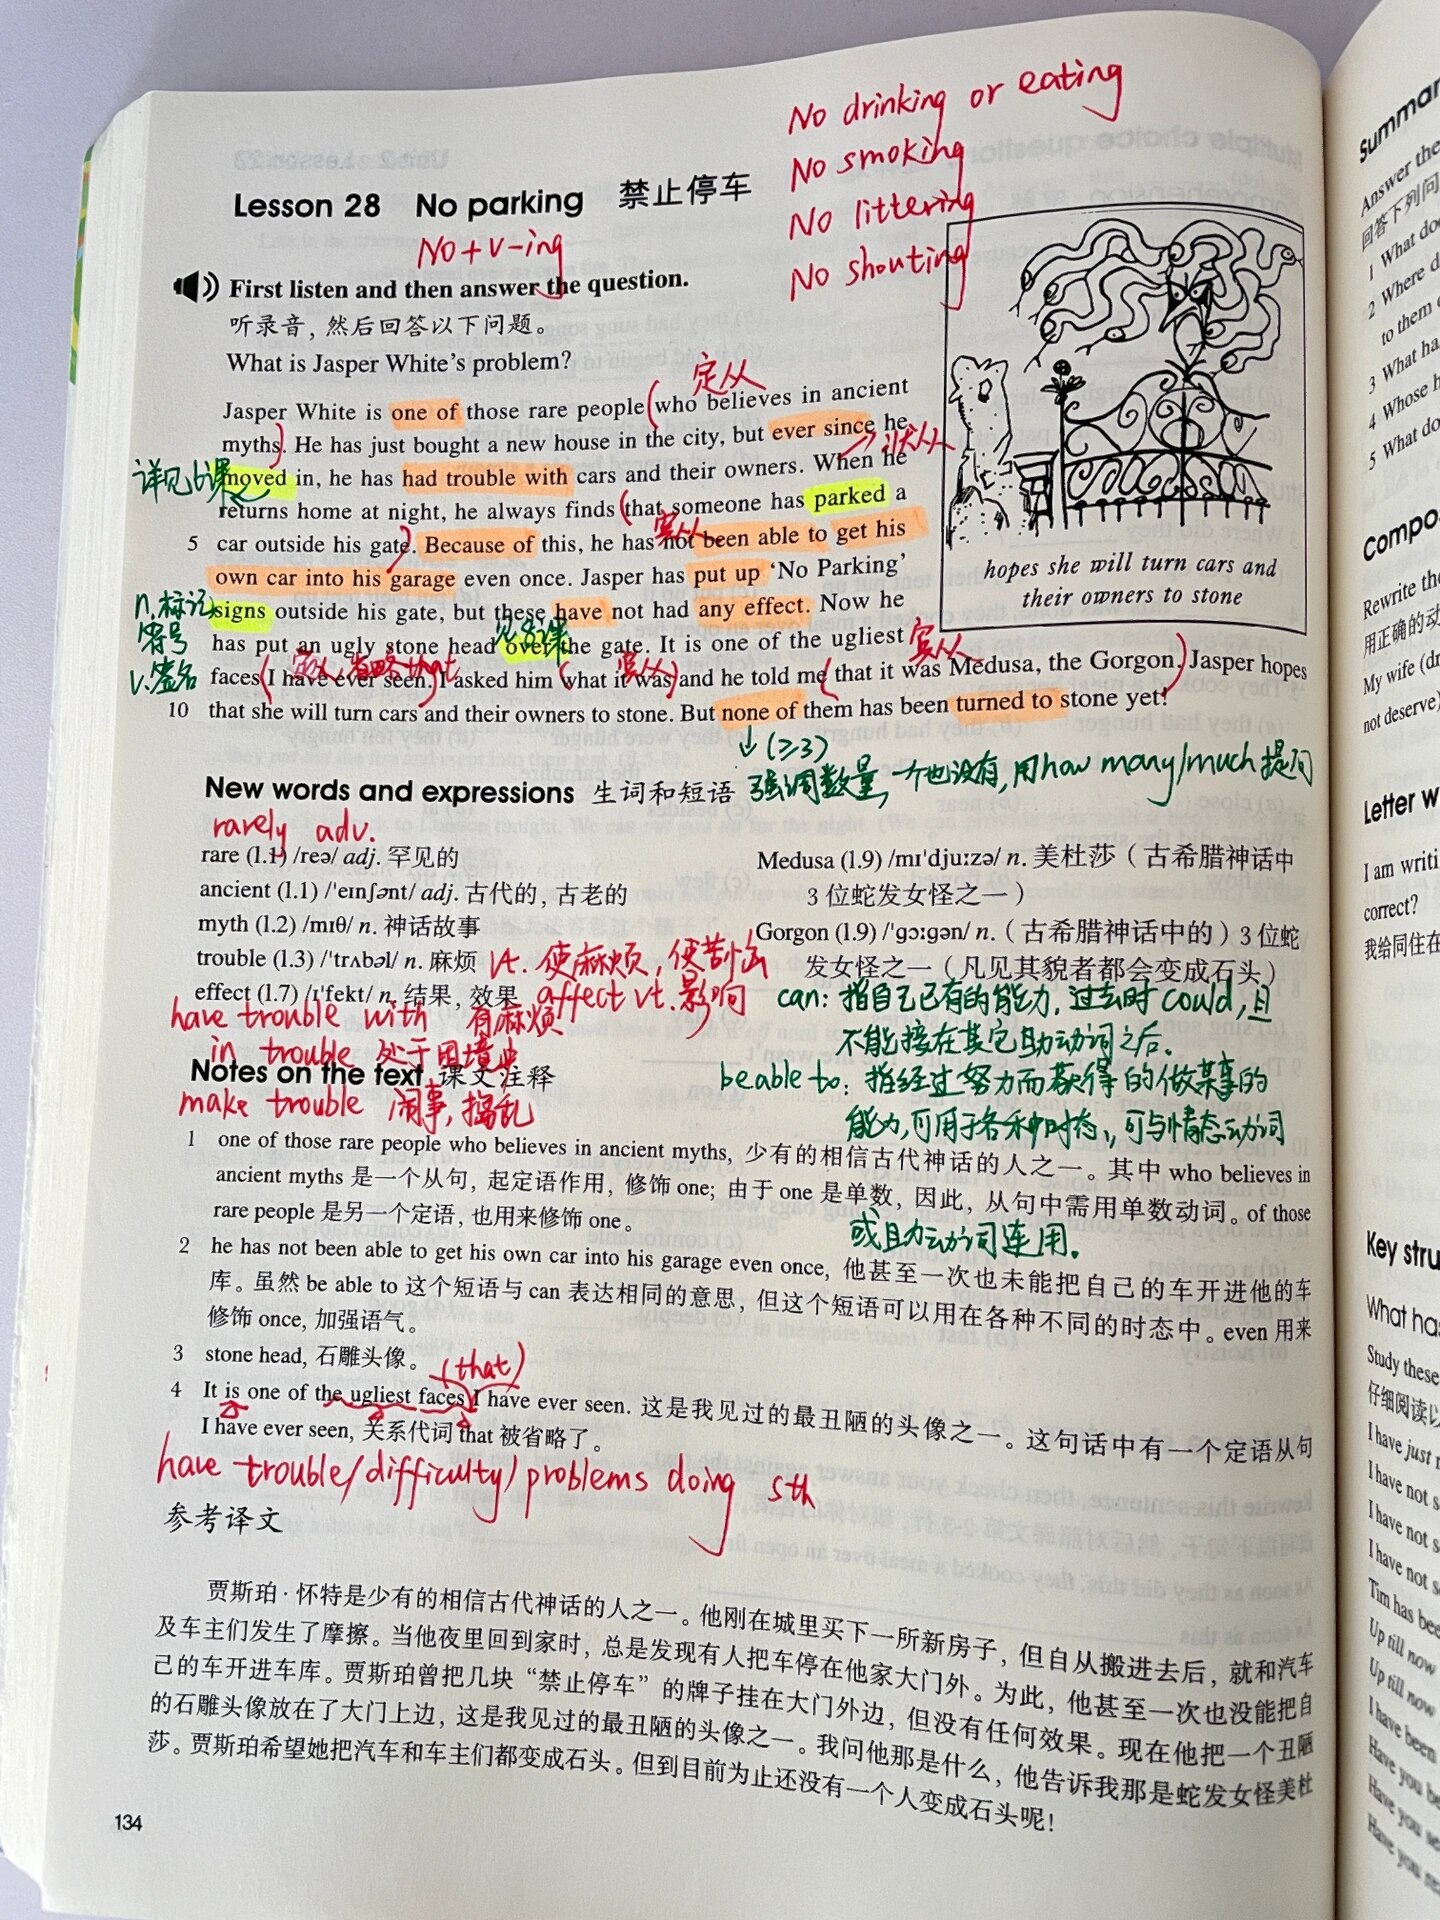 No drinking or eating
No smoking
No littering
No shouting
Lesson 28 No parking 禁止停车
No + v-ing
First listen and then answer the question.
听录音，然后回答以下问题。
What is Jasper White's problem?
定从
Jasper White is one of those rare people (who believes in ancient
myths). He has just bought a new house in the city, but ever since he
状从
详见6课
moved in, he has had trouble with cars and their owners. When he
returns home at night, he always finds (that someone has parked a
宾从
5 car outside his gate). Because of this, he has not been able to get his
own car into his garage even once. Jasper has put up 'No Parking'
n.标记,符号
v.签名
signs outside his gate, but these have not had any effect. Now he
见87课
has put an ugly stone head over the gate. It is one of the ugliest
定从,省略that
宾从
宾从
faces (I have ever seen.) I asked him (what it was) and he told me (that it was Medusa, the Gorgon.) Jasper hopes
10 that she will turn cars and their owners to stone. But none of them has been turned to stone yet!
hopes she will turn cars and
their owners to stone
(≥3)
强调数量,一个也没有,用how many/much提问
New words and expressions 生词和短语
rarely adv.
rare (l.1) /reə/ adj. 罕见的
ancient (l.1) /'eɪnʃənt/ adj. 古代的，古老的
myth (l.2) /mɪθ/ n. 神话故事
trouble (l.3) /'trʌbəl/ n. 麻烦 vt. 使麻烦,使苦恼
effect (l.7) /ɪ'fekt/ n. 结果，效果 affect vt. 影响
Medusa (l.9) /mɪ'djuːzə/ n. 美杜莎（古希腊神话中
3位蛇发女怪之一）
Gorgon (l.9) /'gɔːgən/ n.（古希腊神话中的）3位蛇
发女怪之一（凡见其貌者都会变成石头）
have trouble with 有麻烦
in trouble 处于困境中
make trouble 闹事,捣乱
can: 指自己已有的能力,过去时could,且
不能接在其它助动词之后.
be able to: 指经过努力而获得的做某事的
能力,可用于各种时态,可与情态动词
或助动词连用.
Notes on the text 课文注释
1 one of those rare people who believes in ancient myths, 少有的相信古代神话的人之一。其中 who believes in
ancient myths 是一个从句，起定语作用，修饰 one; 由于 one 是单数，因此，从句中需用单数动词。of those
rare people 是另一个定语，也用来修饰 one。
2 he has not been able to get his own car into his garage even once, 他甚至一次也未能把自己的车开进他的车
库。虽然 be able to 这个短语与 can 表达相同的意思，但这个短语可以用在各种不同的时态中。even 用来
修饰 once, 加强语气。
3 stone head, 石雕头像。
(that)
4 It is one of the ugliest faces I have ever seen. 这是我见过的最丑陋的头像之一。这句话中有一个定语从句
I have ever seen, 关系代词 that 被省略了。
have trouble/difficulty/problems doing sth
参考译文
贾斯珀·怀特是少有的相信古代神话的人之一。他刚在城里买下一所新房子，但自从搬进去后，就和汽车
及车主们发生了摩擦。当他夜里回到家时，总是发现有人把车停在他家大门外。为此，他甚至一次也没能把自
己的车开进车库。贾斯珀曾把几块“禁止停车”的牌子挂在大门外边，但没有任何效果。现在他把一个丑陋
的石雕头像放在了大门上边，这是我见过的最丑陋的头像之一。我问他那是什么，他告诉我那是蛇发女怪美杜
莎。贾斯珀希望她把汽车和车主们都变成石头。但到目前为止还没有一个人变成石头呢！
134
Answer the
回答下列问
1 What doe
2 Where d
to them
3 What ha
4 Whose h
5 What do
Rewrite the
用正确的动
My wife (dr
not deserve)
Letter w
I am writi
correct?
我给同住在
Key stru
What ha
Study these
仔细阅读以
I have just
I have not s
I have not s
I have not s
Tim has bee
Up till now
Up till now
I have been
Have you be
Have you se